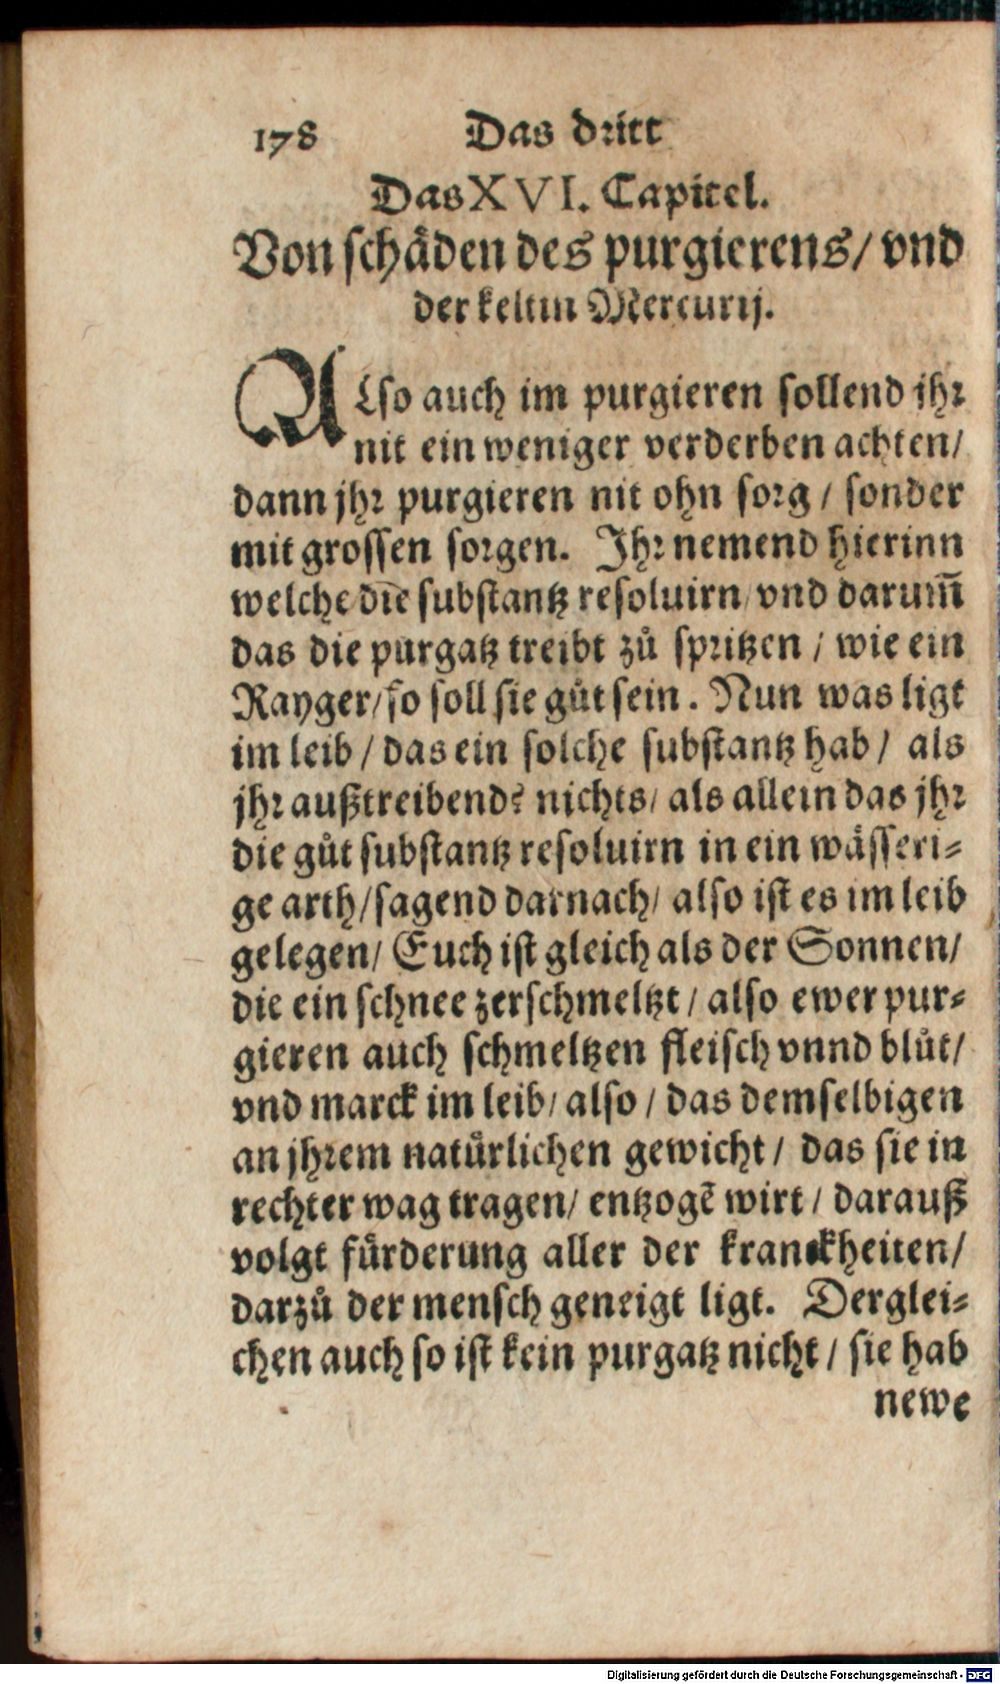 178 Das dritt
Das XVI. Capitel.
Von schåden des purgierens/ vnd
der keltin Mercurij.
Also auch im purgieren sollend jhr
nit ein weniger verderben achten/
dann jhr purgieren nit ohn sorg / sonder
mit grossen sorgen. Jhr nemend hierinn
welche die substantz resoluirn/ vnd darum̃
das die purgatz treibt zů spritzen / wie ein
Rayger/ so soll sie gůt sein. Nun was ligt
im leib / das ein solche substantz hab / als
jhr außtreibend? nichts/ als allein das jhr
die gůt substantz resoluirn in ein wåsseri-
ge arth/ sagend darnach/ also ist es im leib
gelegen/ Euch ist gleich als der Sonnen/
die ein schnee zerschmeltzt / also ewer pur-
gieren auch schmeltzen fleisch vnnd blůt/
vnd marck im leib/ also / das demselbigen
an jhrem natůrlichen gewicht / das sie in
rechter wag tragen/ entzogẽ wirt / darauß
volgt fůrderung aller der kranckheiten/
darzů der mensch geneigt ligt. Derglei-
chen auch so ist kein purgatz nicht / sie hab
newe
Digitalisierung gefördert durch die Deutsche Forschungsgemeinschaft - DFG